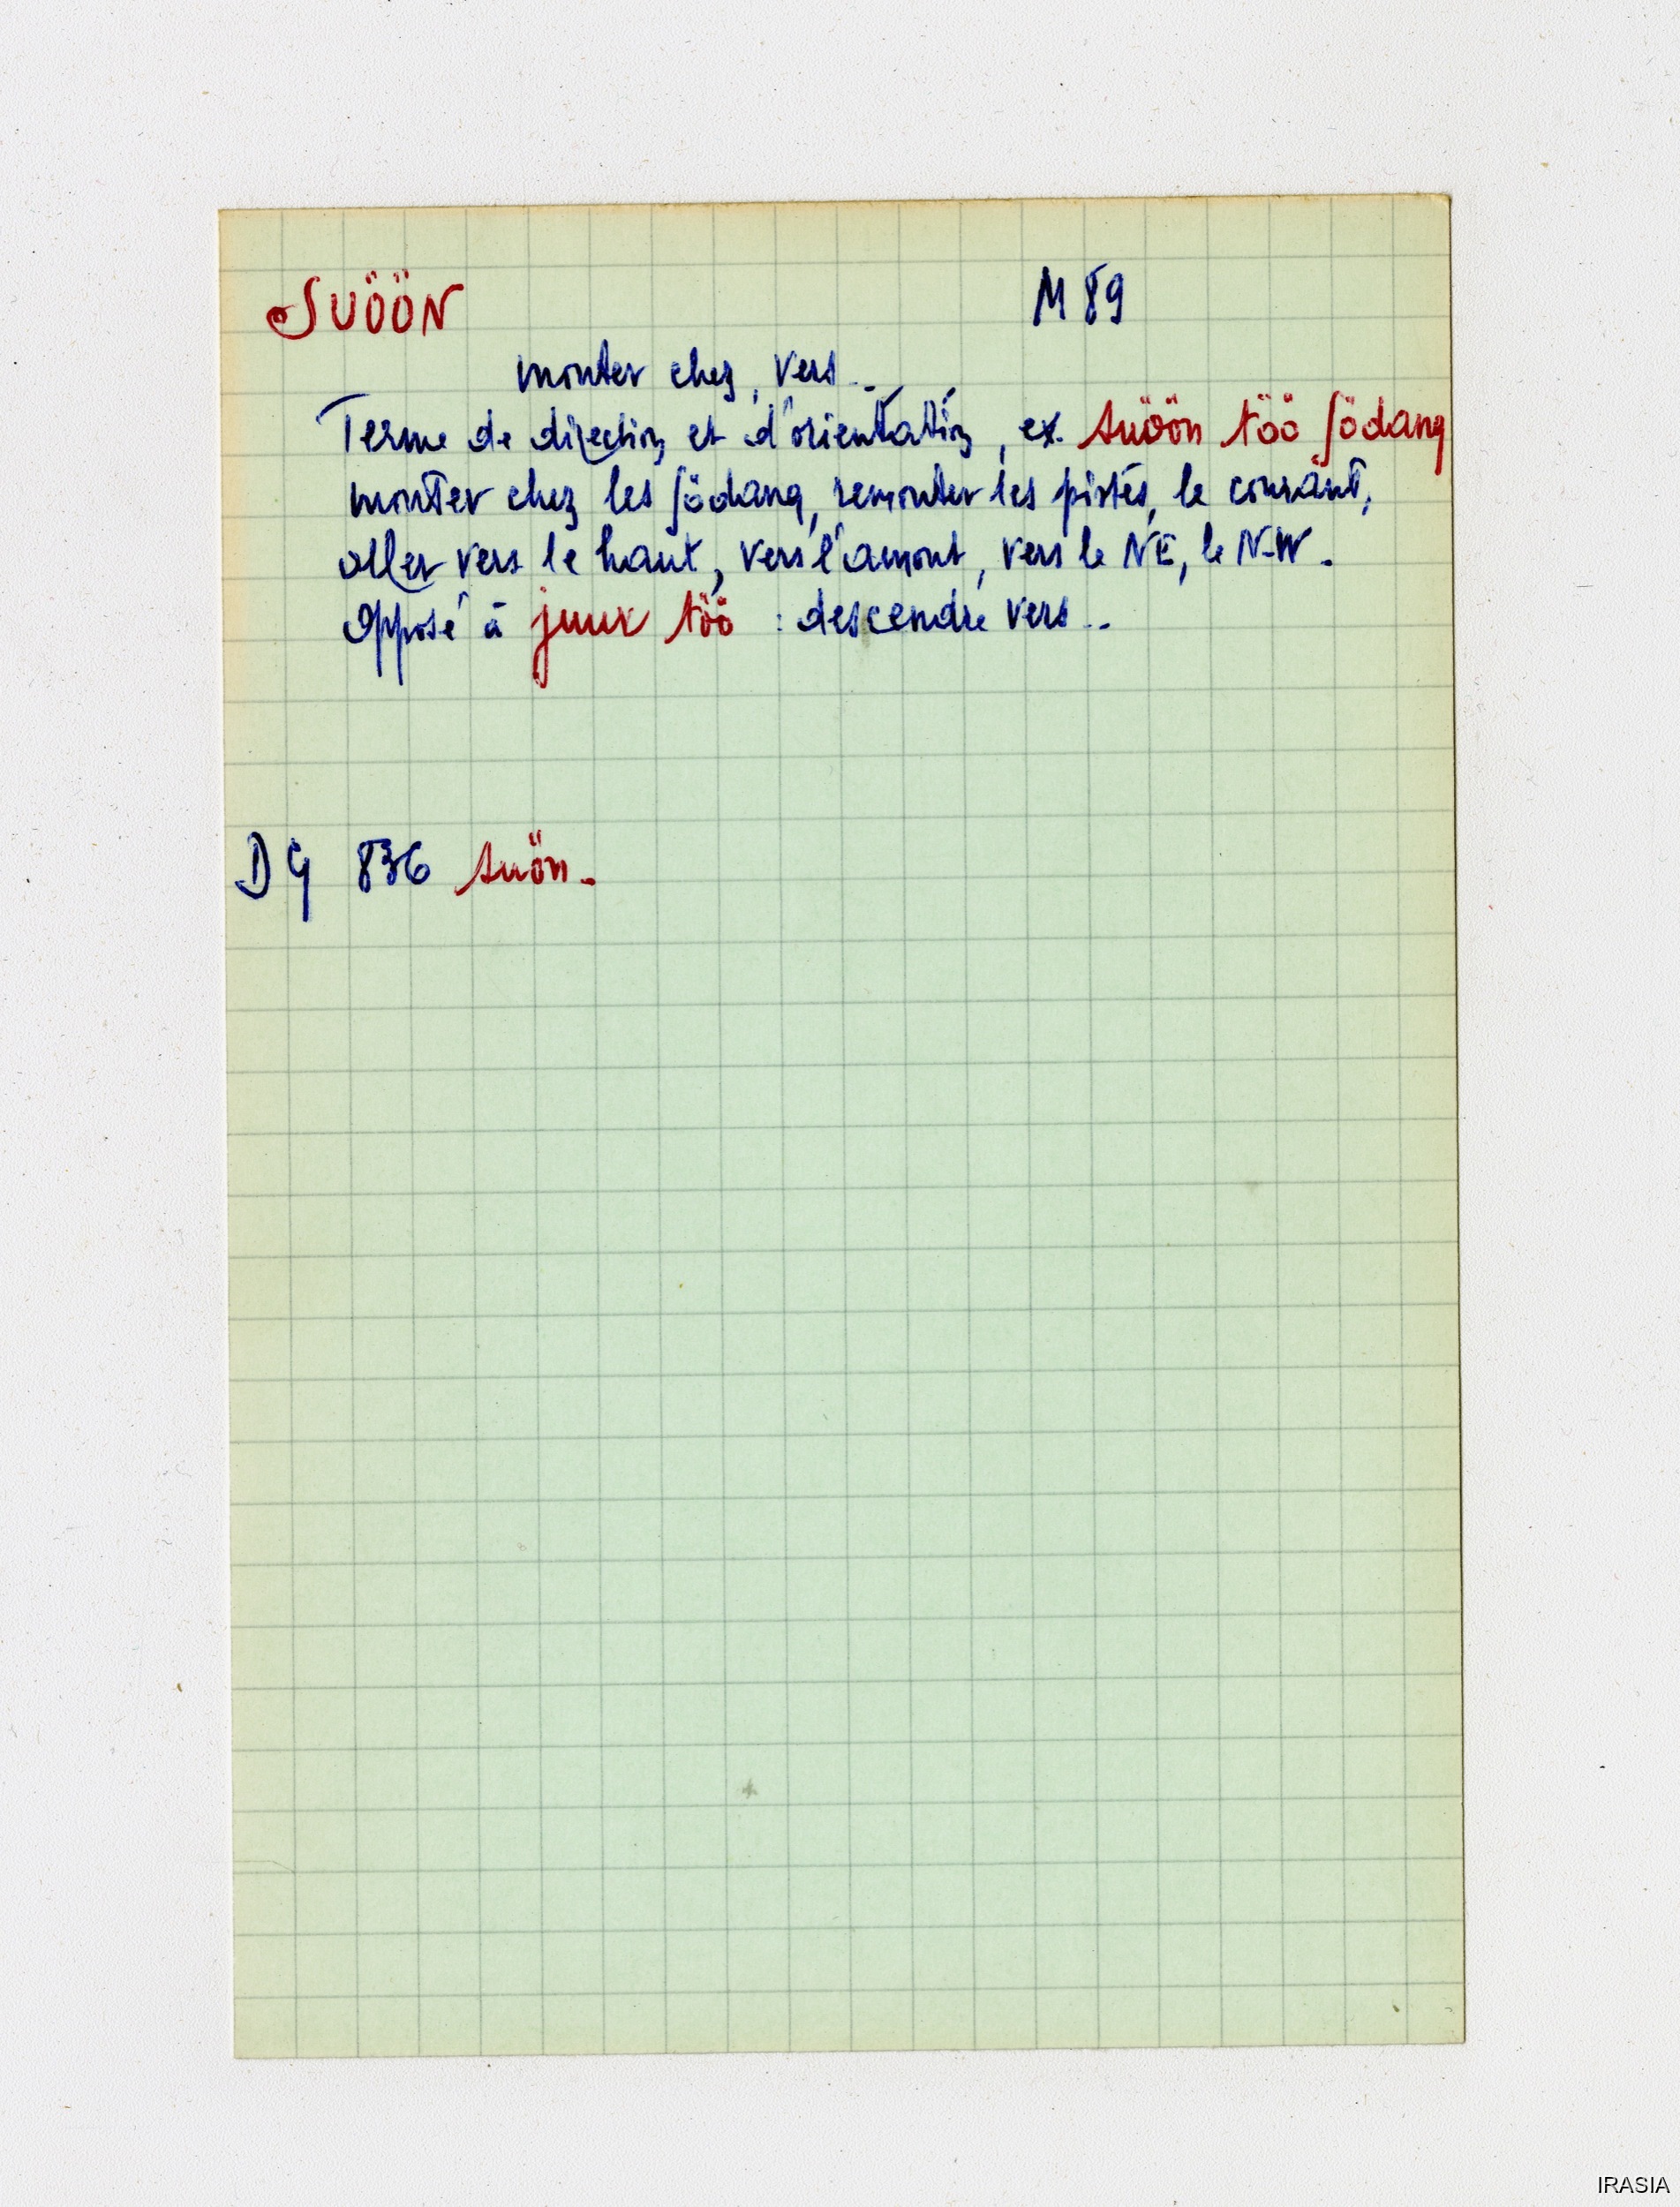 SUÖÖN M 89
monter chez, vers..
Terme de direction et d'orientation, ex. suöön töö Södang
monter chez les Södang, remonter les pistes, le courant,
aller vers le haut, vers l'amont, vers le NE, le N-W.
Opposé à juur töö : descendre vers..
DG 836 suön.
IRASIA